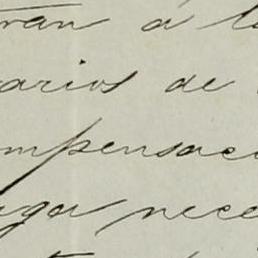 ran á l
arios de
mpensac
uga nece